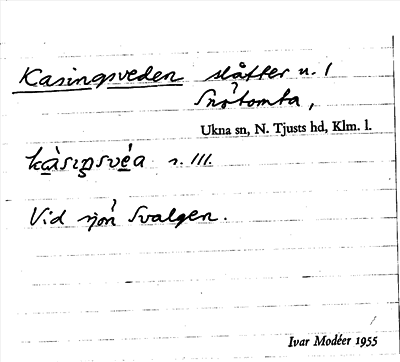 Kasingsveden slåtter u. /
Snötomta,
Ukna sn, N. Tjusts hd, Klm. l.
s. III.
Vid sjön Svalgen.
Ivar Modéer 1955